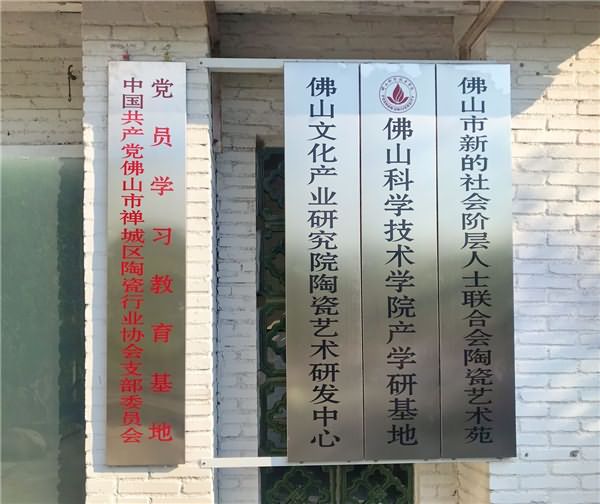 中国共产党佛山市禅城区陶瓷行业协会支部委员会
党员学习教育基地
佛山文化产业研究院陶瓷艺术研发中心
佛山科学技术学院产学研基地
佛山市新的社会阶层人士联合会陶瓷艺术苑